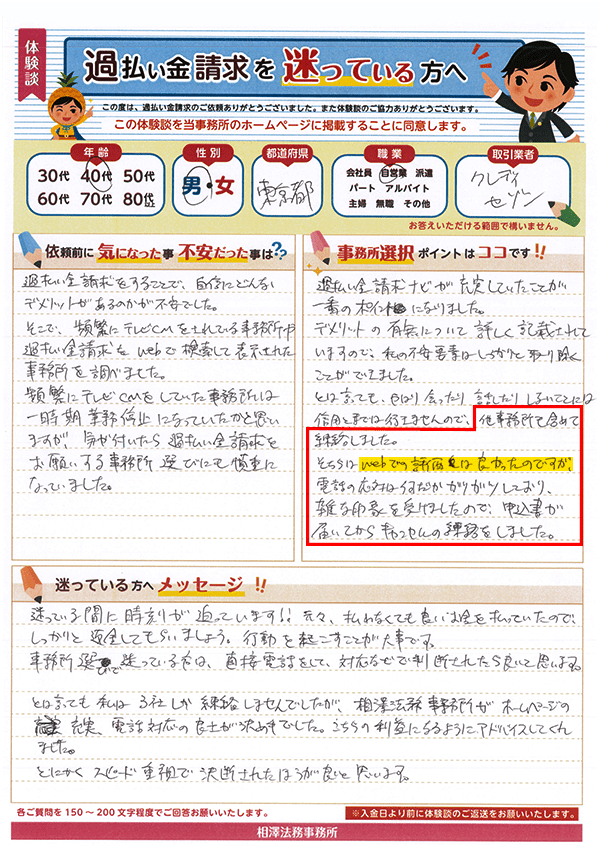 体験談
過払い金請求を迷っている方へ
この度は、過払い金請求のご依頼ありがとうございました。また体験談のご協力ありがとうございます。
この体験談を当事務所のホームページに掲載することに同意します。
年齢
30代 40代 50代
60代 70代 80代以上
性別
男・女
都道府県
東京都
職業
会社員 自営業 派遣
パート アルバイト
主婦 無職 その他
取引業者
クレディ
セゾン
お答えいただける範囲で構いません。
依頼前に気になった事 不安だった事は!?
過払い金請求をすることで、自信にどんな
デメリットがあるのかが不安でした。
そこで、頻繁にテレビCMをされている事務所や
過払い金請求をwebで検索して表示された
事務所を調べました。
頻繁にテレビCMをしていた事務所は
一時期業務停止になっていたかと思い
ますが、気が付いたら過払い金請求を
お願いする事務所選びにも慎重に
なっていました。
事務所選択ポイントはココです!!
過払い金請求ナビが充実していたことが
一番のポイントになりました。
デメリットの有無について詳しく記載されて
いますので、私の不安要素はしっかりと取り除く
ことができました。
とは言っても、やはり会ったり話したりしないことには
信用とまでは行きませんので、他事務所も含めて
連絡しました。
そちらはwebでの評価は良かったのですが、
電話の応対は何だかガツガツしており、
雑な印象を受けましたので、申込書が
届いてからキャンセルの連絡をしました。
迷っている方へメッセージ!!
迷っている間に時刻が迫っています!! 元々、払わなくても良いお金を払っていたので、
しっかりと返金してもらいましょう。行動を起こすことが大事です。
事務所選びで迷っている方は、直接電話をして、対応などで判断されたら良いと思います。
とは言っても私は3社しか連絡しませんでしたが、相澤法務事務所がホームページの
充実、電話対応の良さが決め手でした。こちらの利益になるようにアドバイスしてくれ
ました。
とにかくスピード重視で決断されたほうが良いと思います。
各ご質問を150〜200文字程度でご回答お願いいたします。
※入金日より前に体験談のご返送をお願いいたします。
相澤法務事務所